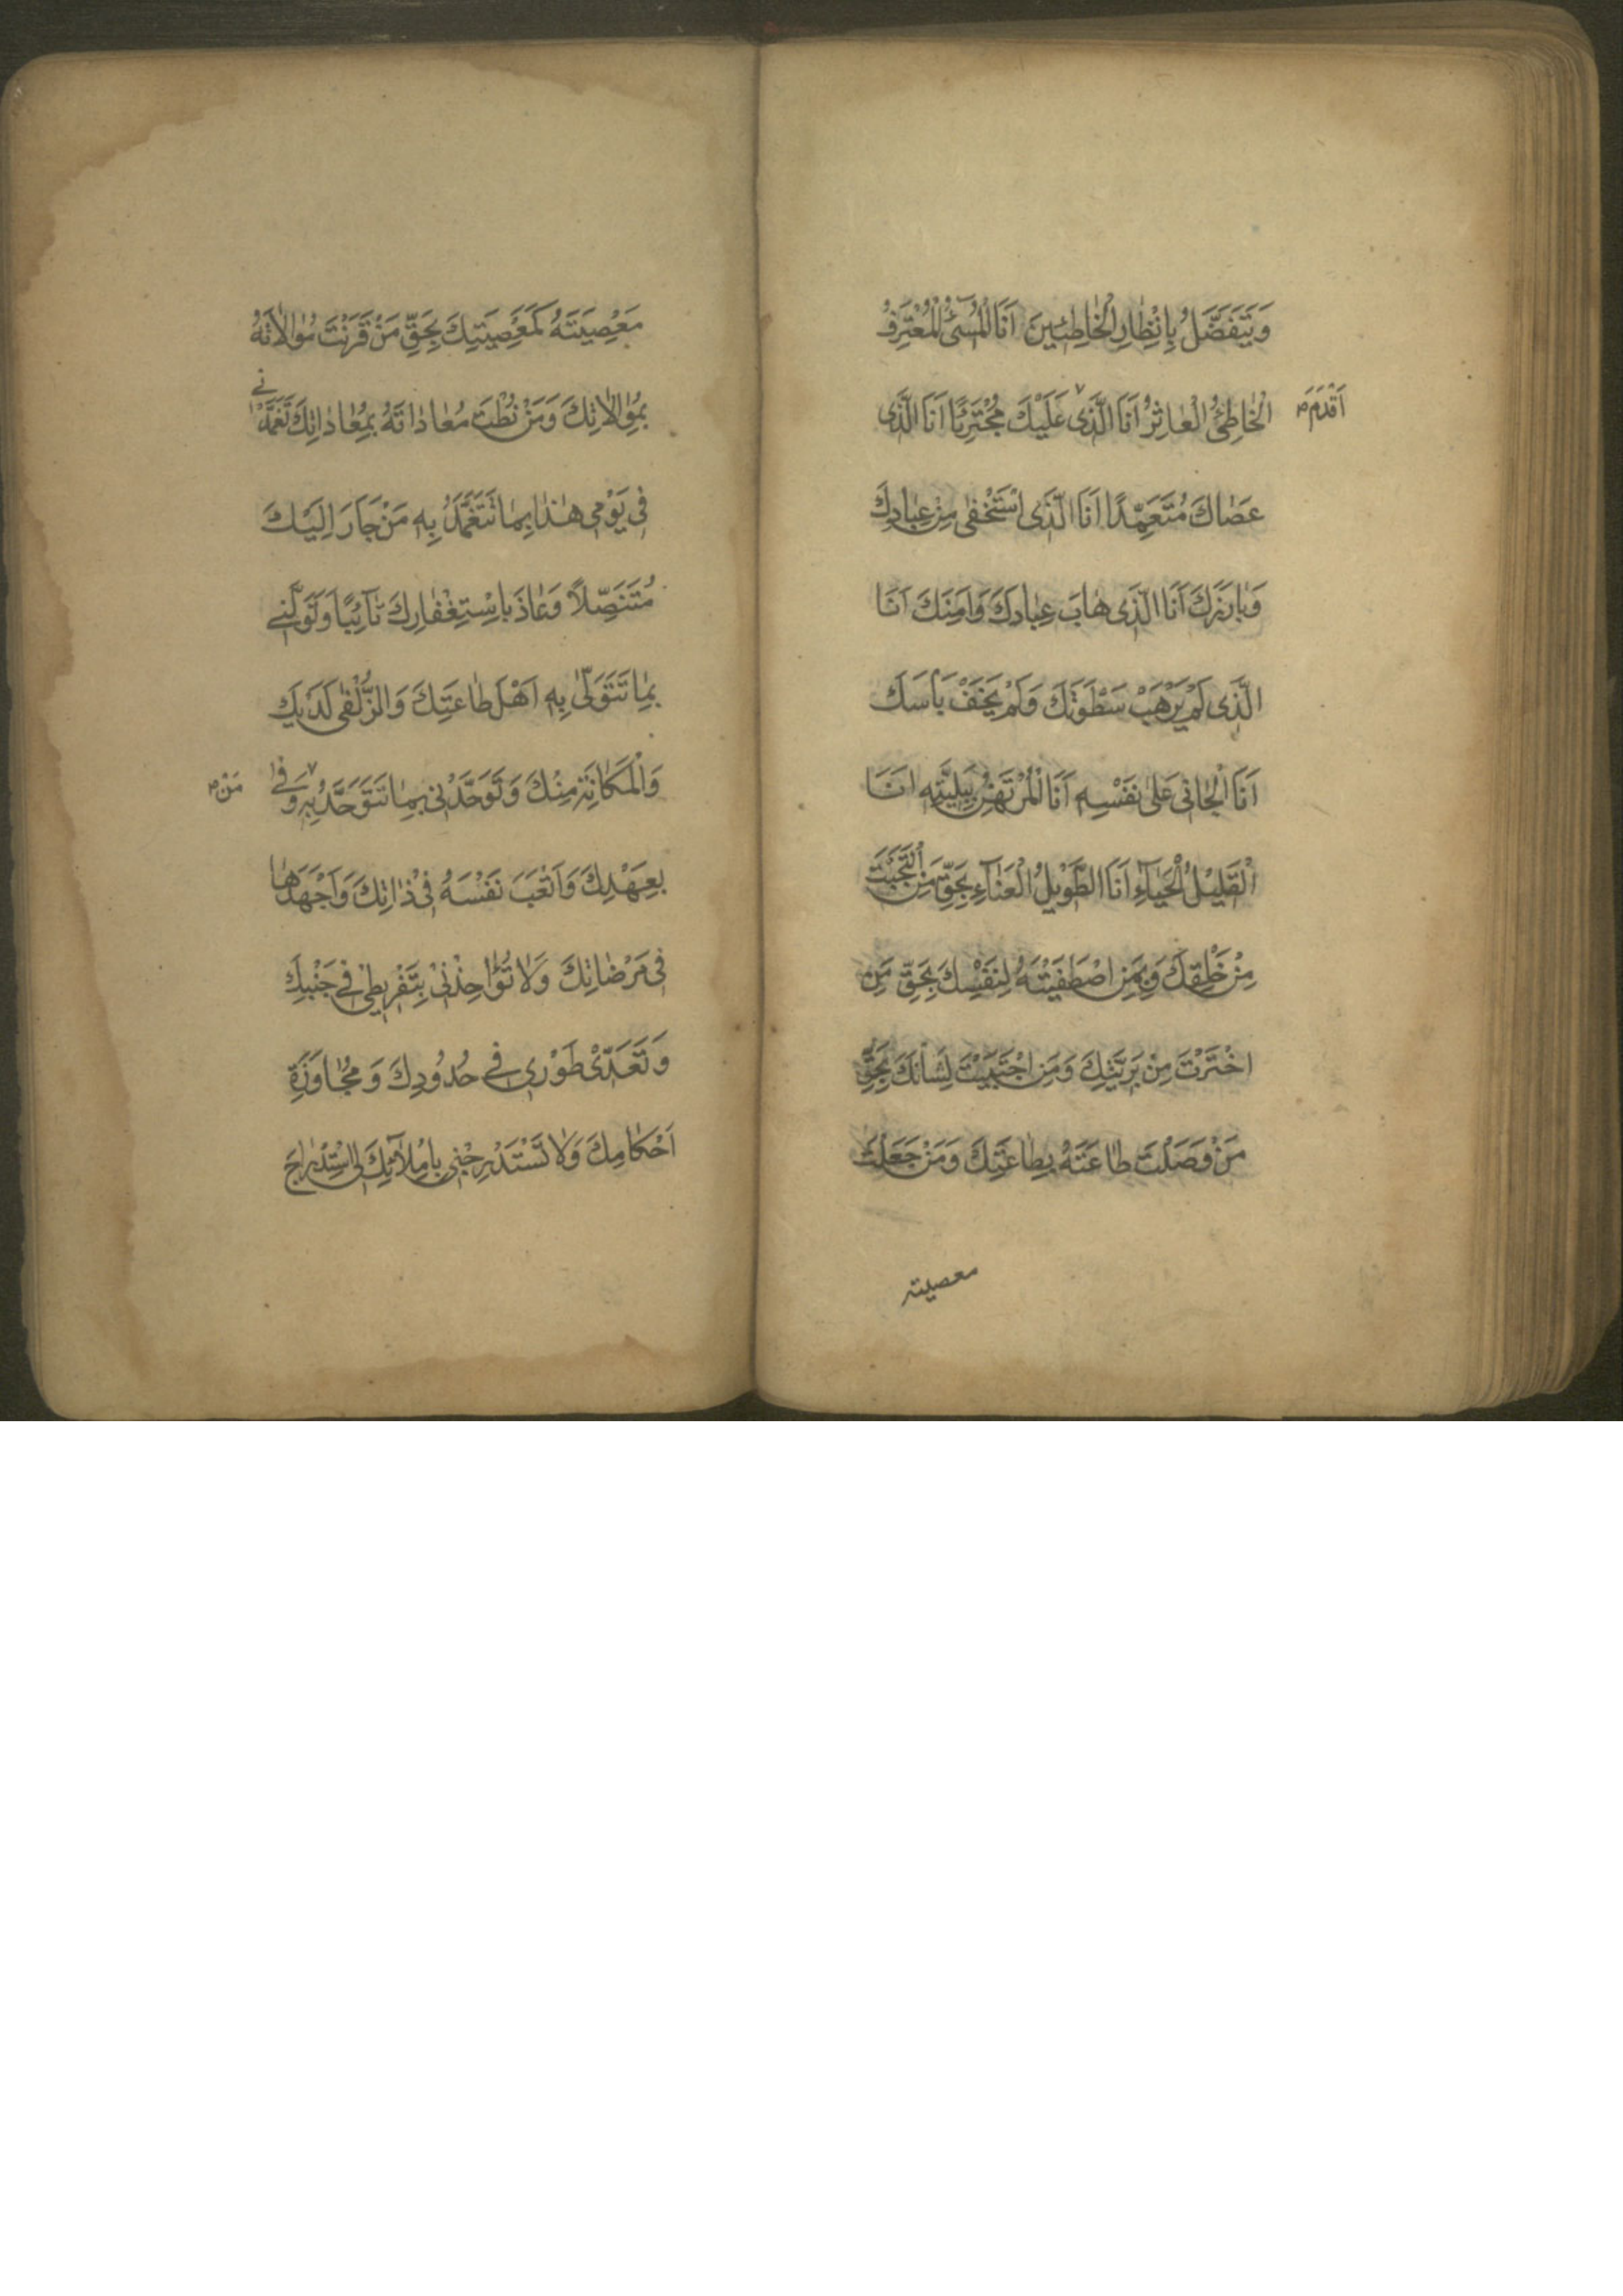 وَيَتَفَضَّلُ بِاِنْظٰارِ الْخٰاطِئينَ اَنَا الْمُسٓئُ الْمُعْتَرِفُ
الْخٰاطِئُ الْعٰاثِرُ اَنَا الَّذى عَلَيْكَ مُجْتَرِئًا اَنَا الَّذى
اَقْدَمَ
عَصٰاكَ مُتَعَمِّدًا اَنَا الَّذى اسْتَخْفٰى مِنْ عِبٰادِكَ
وَبٰارَزَكَ اَنَا الَّذى هٰابَ عِبٰادَكَ وَاَمِنَكَ اَنَا
الَّذى لَمْ يَرْهَبْ سَطْوَتَكَ وَلَمْ يَخَفْ بَاْسَكَ
اَنَا الْجٰانى عَلٰى نَفْسِهِ اَنَا الْمُرْتَهَنُ بِبَلِيَّتِهِ اَنَا
الْقَليلُ الْحَيٰآءِ اَنَا الطَّويلُ الْعَنٰآءِ بِحَقِّ مَنِ انْتَجَبْتَ
مِنْ خَلْقِكَ وَبِمَنِ اصْطَفَيْتَهُ لِنَفْسِكَ بِحَقِّ مَنِ
اخْتَرْتَ مِنْ بَرِيَّتِكَ وَمَنِ اجْتَبَيْتَ لِشَاْنِكَ بِحَقِّ
مَنْ وَصَلْتَ طٰاعَتَهُ بِطٰاعَتِكَ وَمَنْ جَعَلْتَ
معصيته
مَعْصِيَتَهُ كَمَعْصِيَتِكَ بِحَقِّ مَنْ قَرَنْتَ مُوٰالاٰتَهُ
بِمُوٰالاٰتِكَ وَمَنْ نُطْتَ مُعٰادٰاتَهُ بِمُعٰادٰاتِكَ تَغَمَّدْنى
فى يَوْمى هٰذٰا بِمٰا تَتَغَمَّدُ بِهِ مَنْ جَاَرَ اِلَيْكَ
مُتَنَصِّلاً وَعٰاذَ بِاسْتِغْفٰارِكَ تٰآئِبًا وَتَوَلَّنى
بِمٰا تَتَوَلّٰى بِهِ اَهْلَ طٰاعَتِكَ وَالزُّلْفٰى لَدَيْكَ
وَالْمَكٰانَةِ مِنْكَ وَتَوَحَّدْنى بِمٰا تَتَوَحَّدُ بِهِ وَفٰى
مَنْ
بِعَهْدِكَ وَاَتْعَبَ نَفْسَهُ فى ذٰاتِكَ وَاَجْهَدَهٰا
فى مَرْضٰاتِكَ وَلاٰ تُؤٰاخِذْنى بِتَفْريطى فى جَنْبِكَ
وَتَعَدّى طَوْرى فى حُدُودِكَ وَمُجٰاوَزَةِ
اَحْكٰامِكَ وَلاٰ تَسْتَدْرِجْنى بِاِمْلاٰئِكَ لى اسْتِدْرٰاجَ